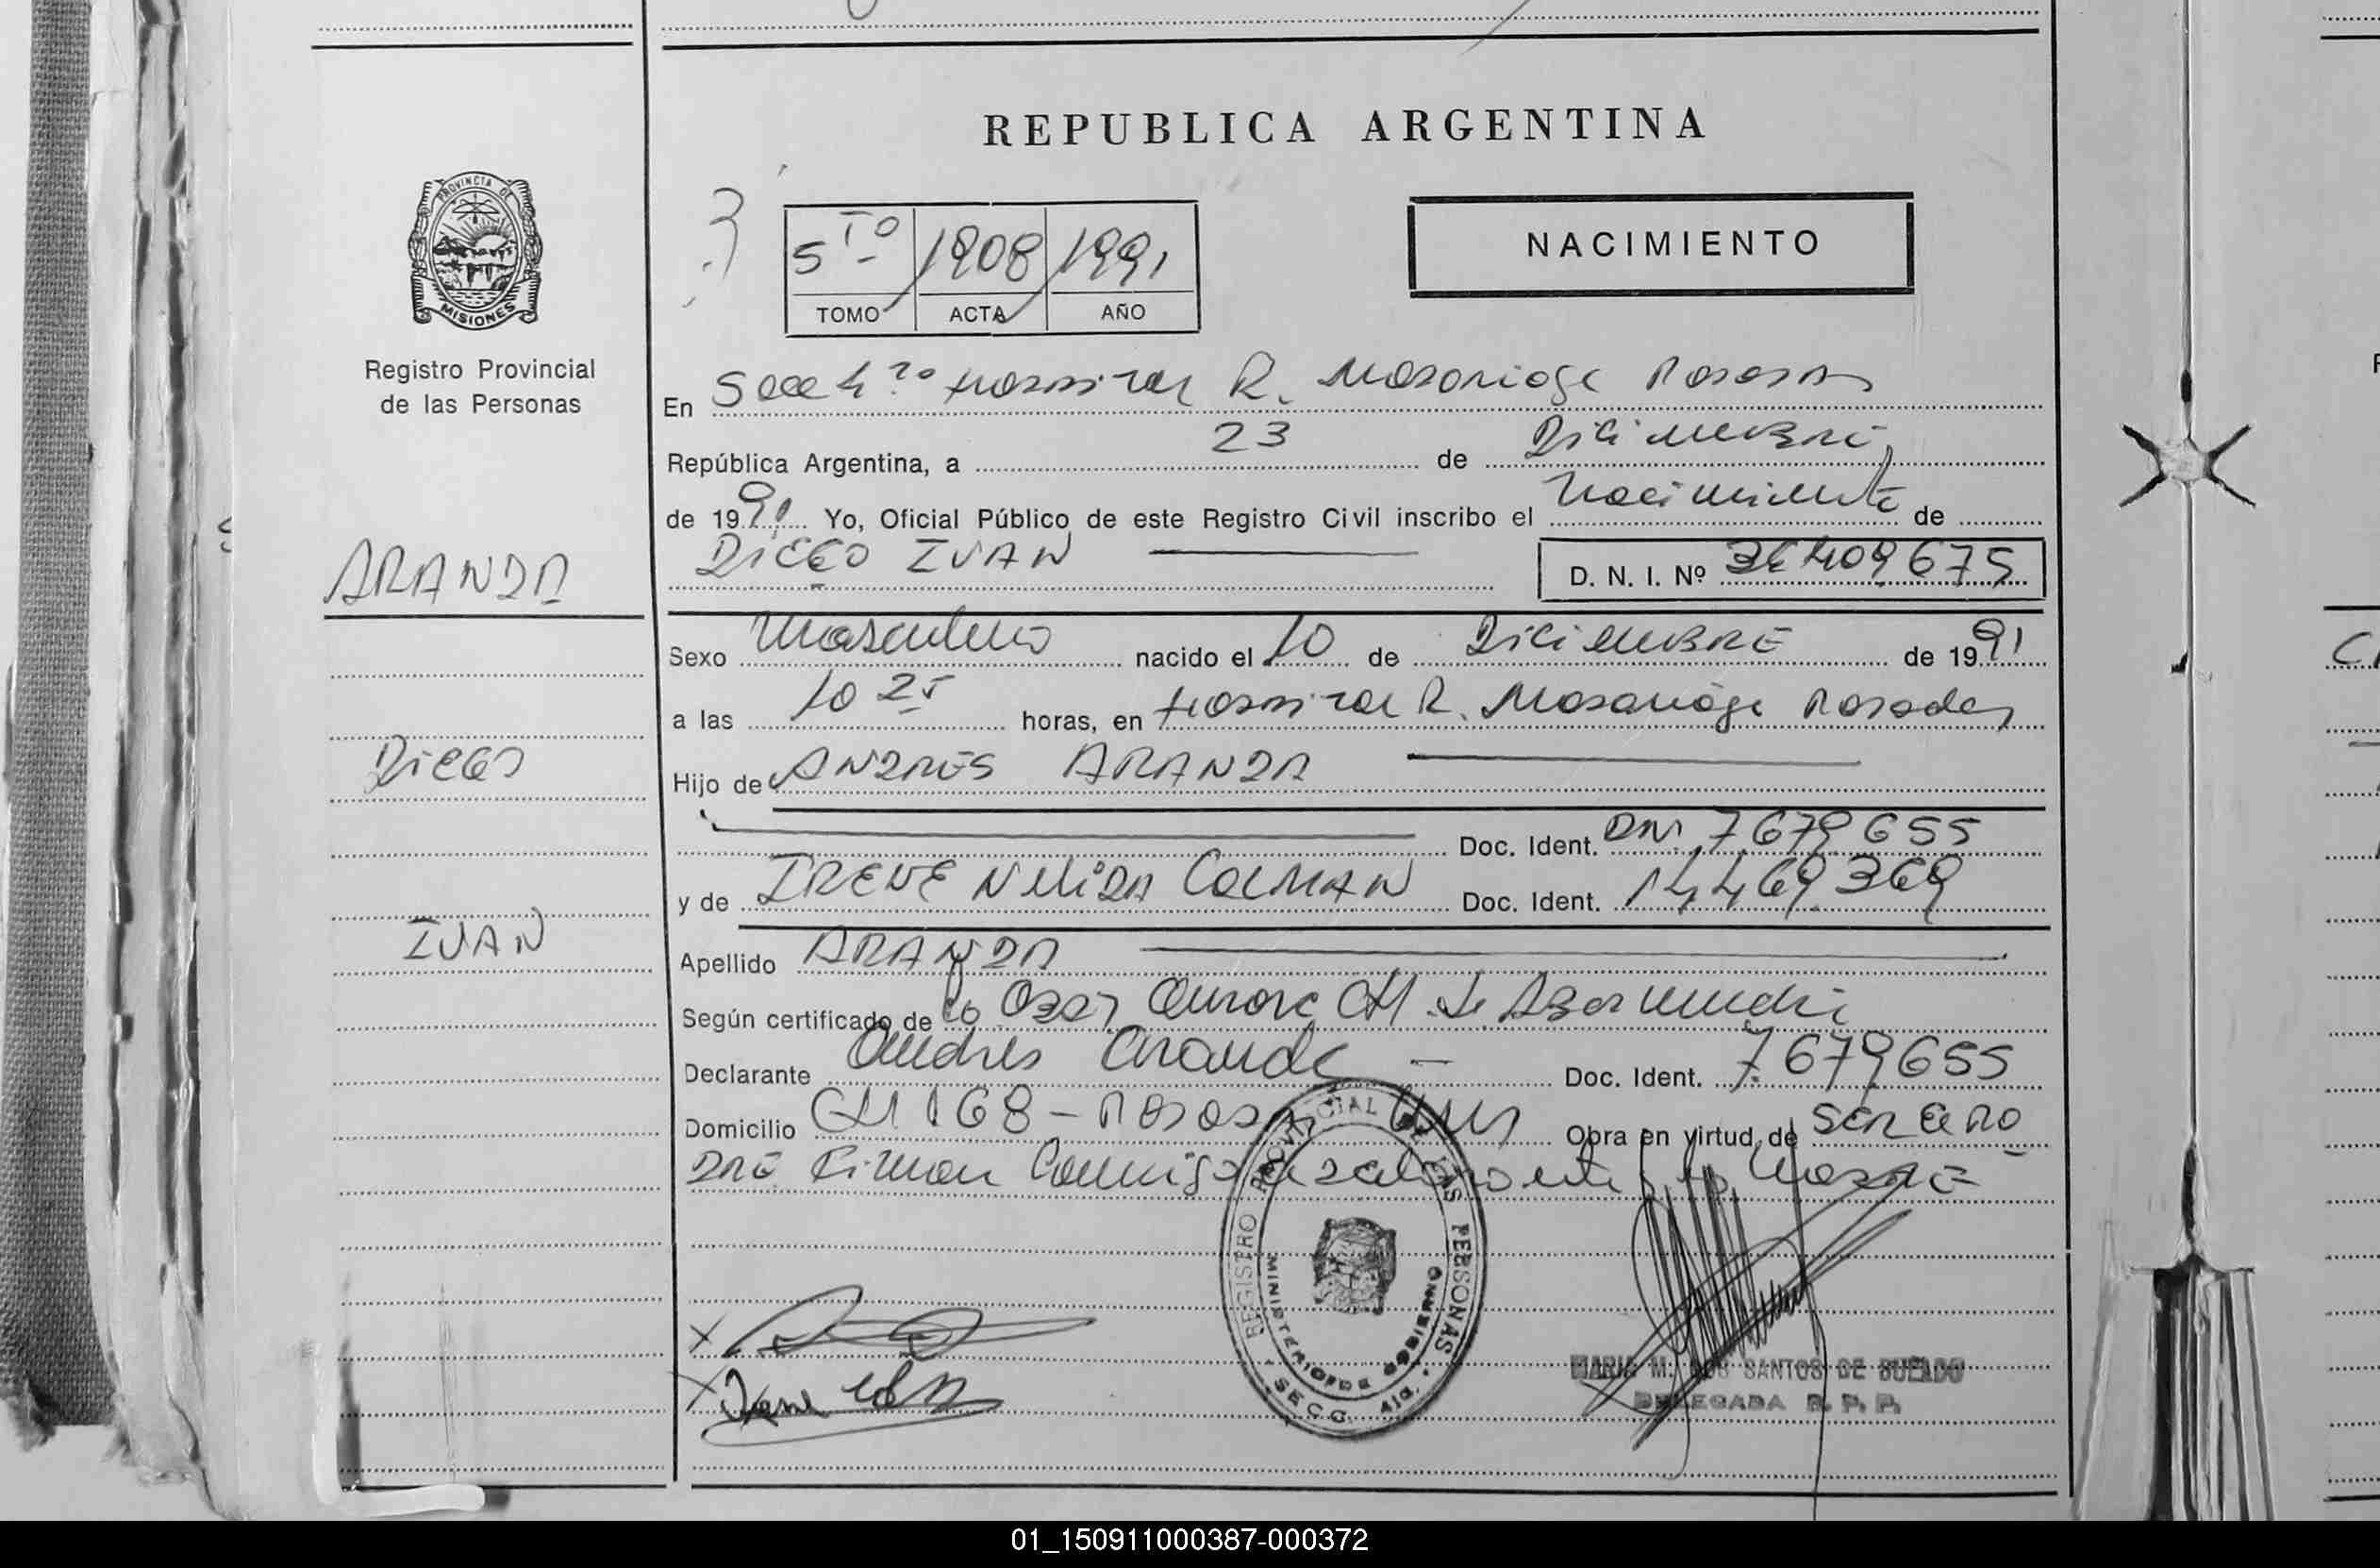 REPUBLICA ARGENTINA
PROVINCIA DE
MISIONES
Registro Provincial
de las Personas
5to 1908 1991
TOMO ACTA AÑO
NACIMIENTO
En Secc 4ta Hospital R. Madariaga Posadas
República Argentina, a 23 de Diciembre
de 1991 Yo, Oficial Público de este Registro Civil inscribo el Nacimiento de
DIEGO IVAN D. N. I. Nº 409675
ARANDA
Sexo Masculino nacido el 10 de Diciembre de 1991
a las 10 25 horas, en Hospital R. Madariaga Posadas
DIEGO
Hijo de ANDRES ARANDA
Doc. Ident. DNI 7679655
y de IRENE NELIDA COLMAN Doc. Ident. 14469369
IVAN
Apellido ARANDA
Según certificado de la Obst Aurora CH de
Declarante Andres Aranda Doc. Ident. 7679655
Domicilio CH 168 - Posadas Mnes Obra en virtud de ser el PA
DRE Firman Conmigo el declarante y la MADRE
REGISTRO PROVINCIAL DE LAS PERSONAS
MINISTERIO DE GOBIERNO
SECC. 4ta.
MARIA M. DOS SANTOS DE SUELDO
DELEGADA R. P. P.
01_150911000387-000372